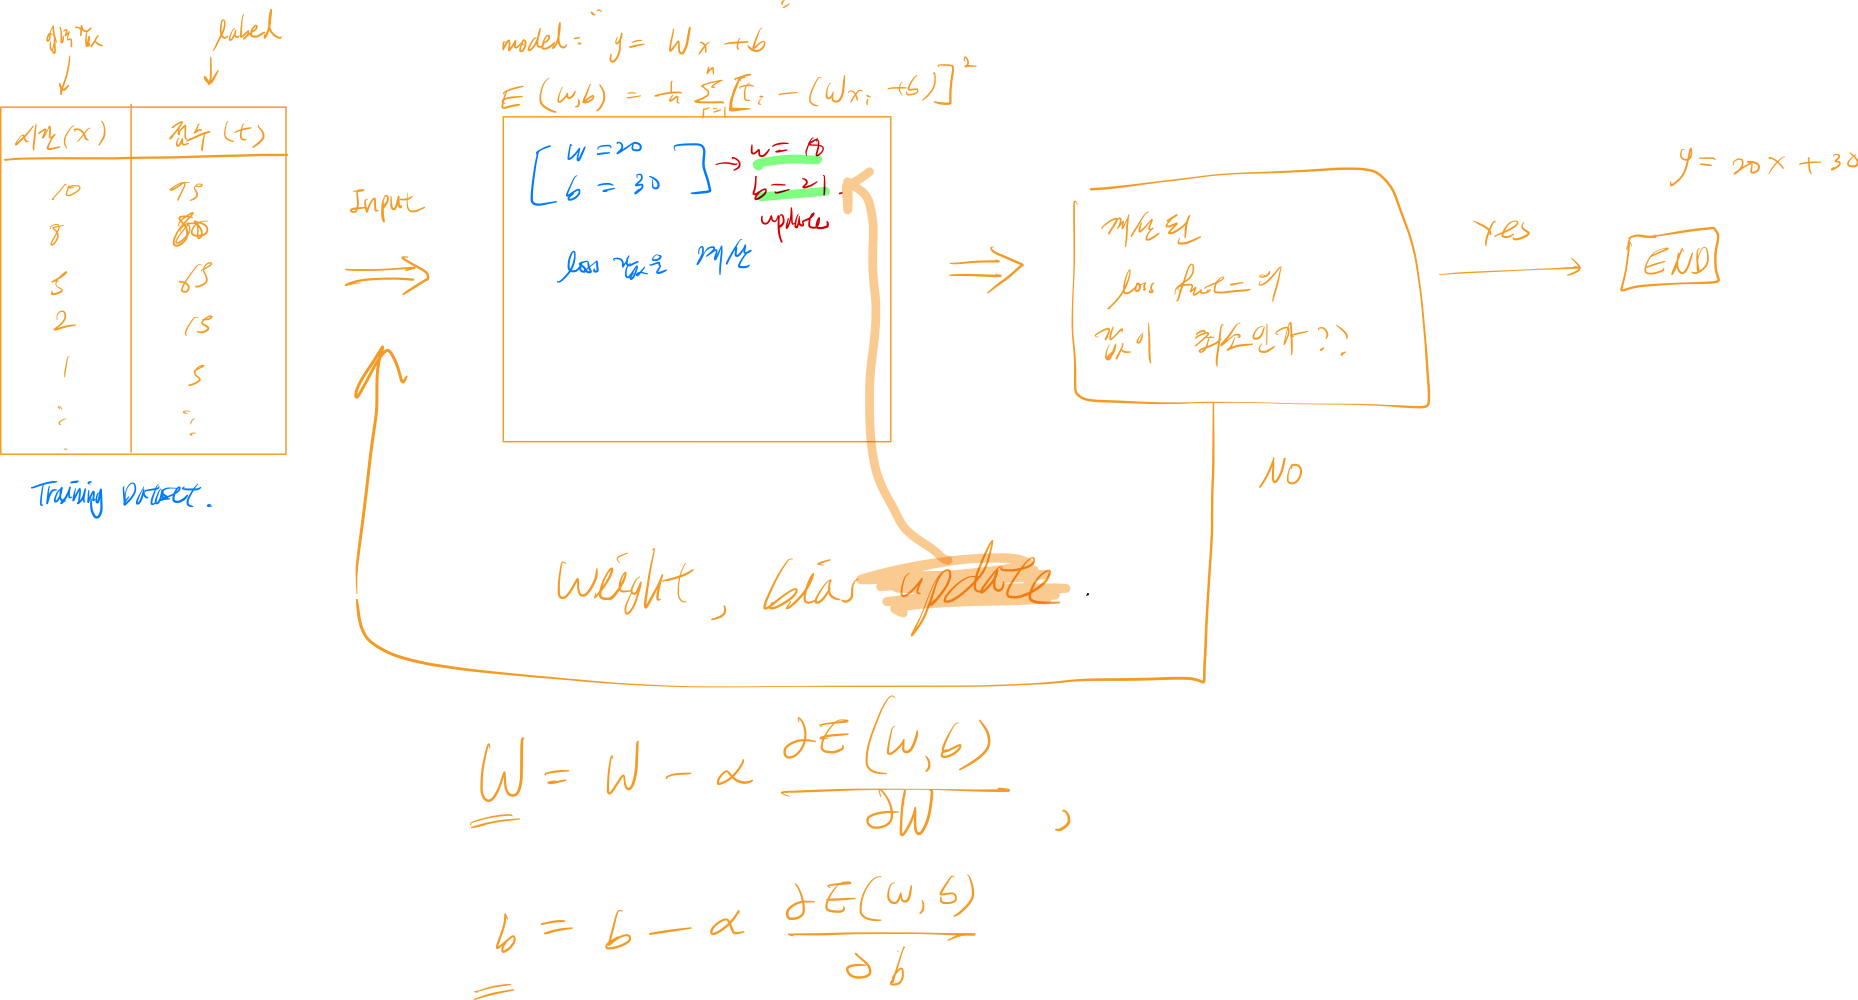 입력값 label
시간(x) 점수(t)
10 95
8 80
5 65
2 15
1 5
⋮ ⋮
Training Dataset.
Input
model = " y = Wx + b "
E (w,b) = 1/n Σ [t_i - (Wx_i + b)]²
w = 20
b = 30
→ w = 18
b = 21.
update
loss 값을 계산
계산된
loss funct=의
값이 최소인가??
Yes
y = 20x + 30
END
NO
Weight, bias update.
W = W - α ∂E(w,b)/∂W ,
b = b - α ∂E(w,b)/∂b